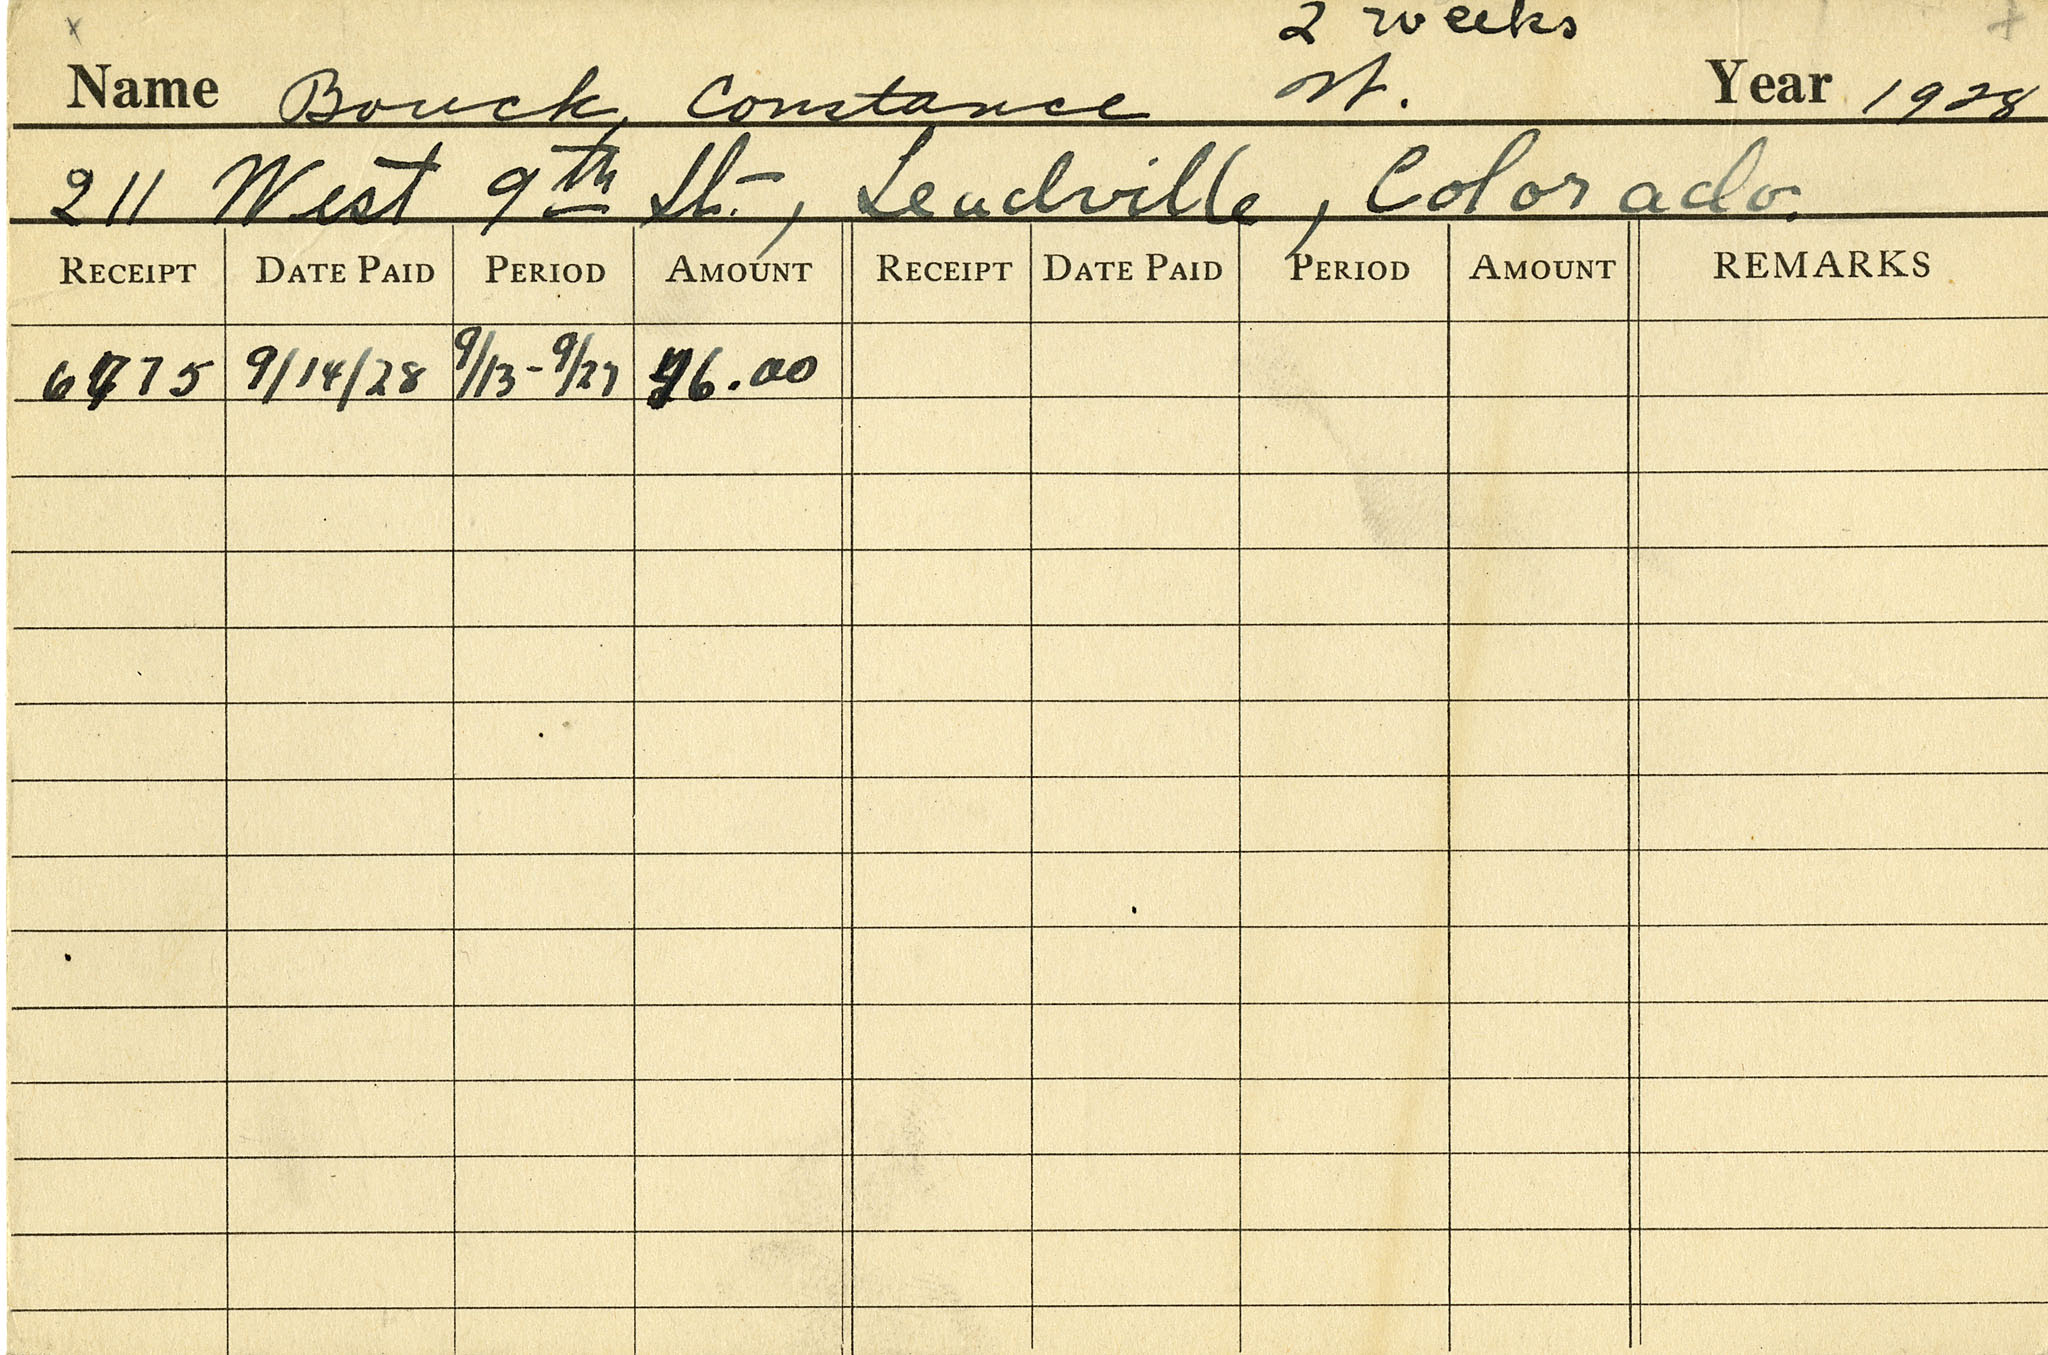 2 weeks
Name Bouck, Constance W. Year 1928
211 West 9th St., Leadville, Colorado.
RECEIPT DATE PAID PERIOD AMOUNT RECEIPT DATE PAID PERIOD AMOUNT REMARKS
9/14/28 9/13-9/27